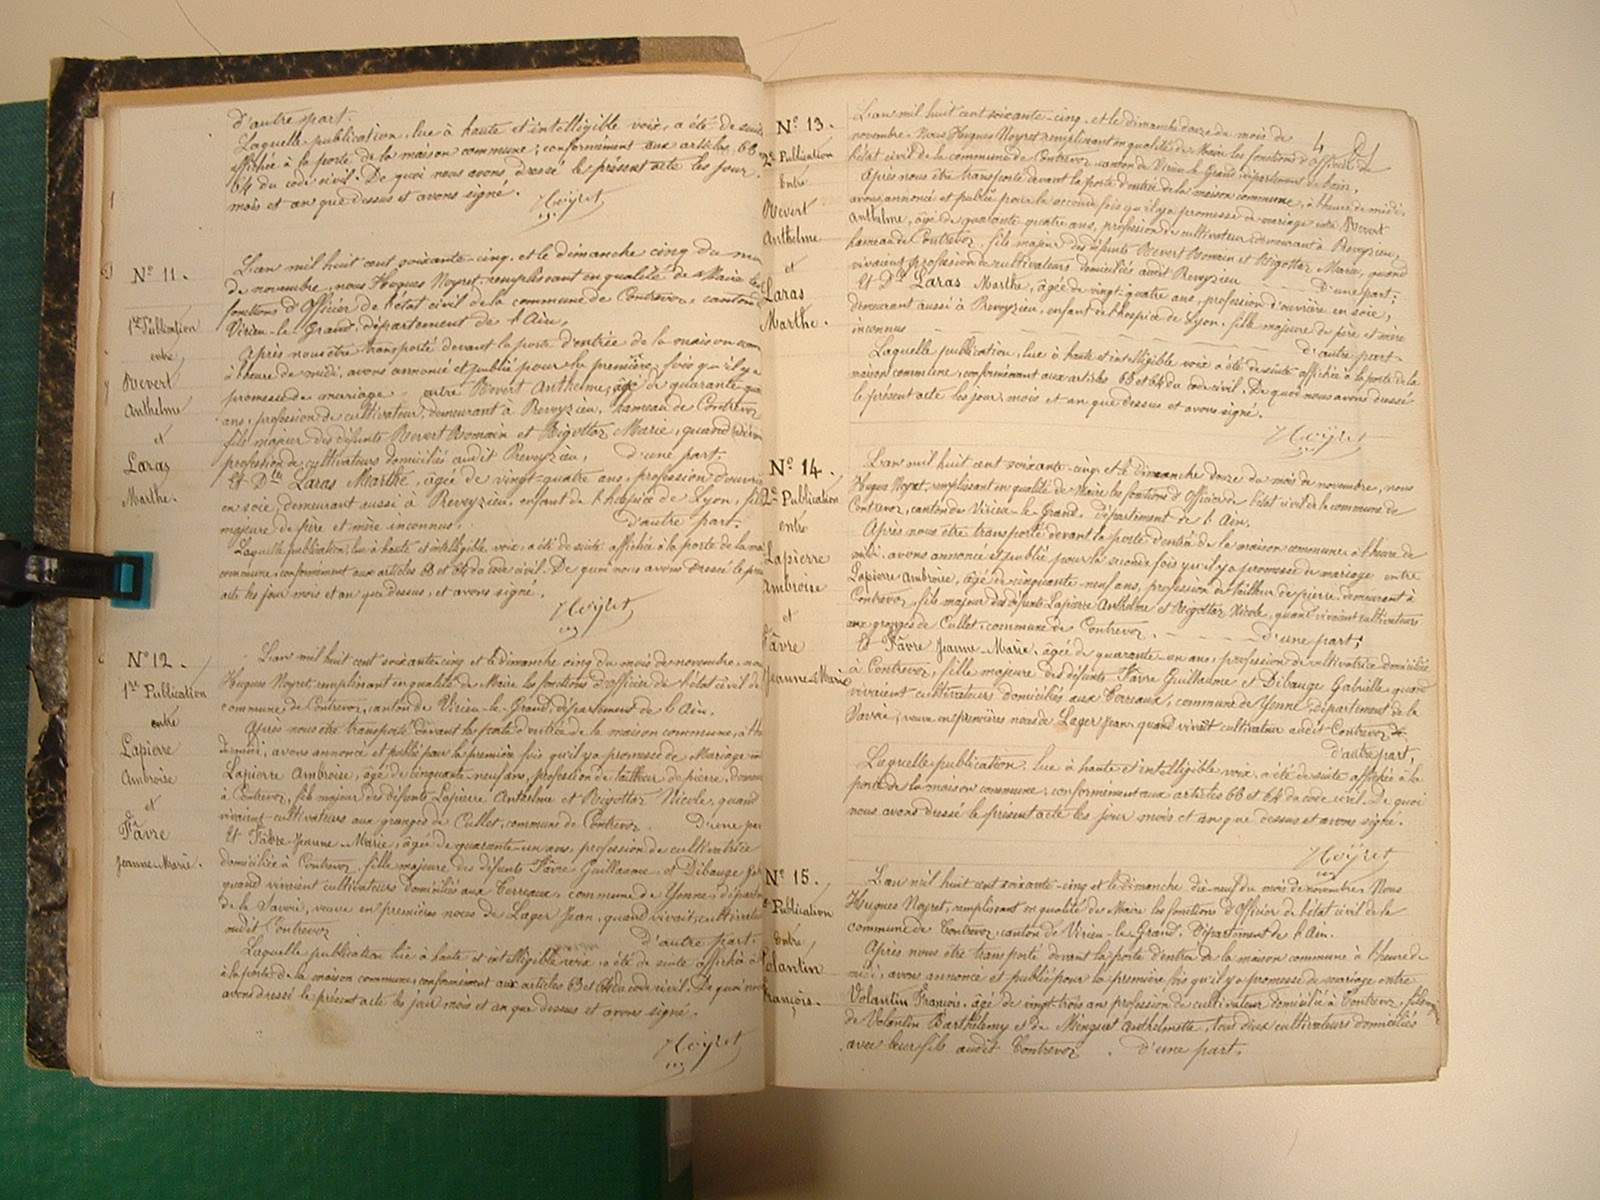 d'autre part.
Laquelle publication, lue à haute et intelligible voix, a été de suite
affichée à la porte de la maison commune, conformément aux articles 63 et
64 du code civil. De quoi nous avons dressé le présent acte les jour
mois et an que dessus et avons signé.
Noyret
N° 11.
1re Publication
entre
Revert
Anthelme
et
Laras
Marthe.
L'an mil huit cent soixante-cinq, et le dimanche cinq du mois
de novembre, nous Hugues Noyret, remplissant en qualité de Maire les
fonctions d'Officier de l'état civil de la commune de Contrevoz, canton de
Virieu-le-Grand, département de l'Ain,
Après nous être transporté devant la porte d'entrée de la maison com
à l'heure de midi, avons annoncé et publié pour la première fois qu'il y a
promesse de mariage entre Revert Anthelme, âgé de quarante-qua
ans, profession de cultivateur, demeurant à Prevyzieu, hameau de Contrevoz
fils majeur des défunts Revert Romain et Rigottaz Marie, quand vivaient
profession de cultivateurs domiciliés audit Prevyzieu, d'une part.
Et Dlle Laras Marthe, âgée de vingt-quatre ans, profession d'ouvrière
en soie, demeurant aussi à Prevyzieu, enfant de l'hospice de Lyon, fille
majeure de père et mère inconnus, d'autre part.
Laquelle publication, lue à haute et intelligible voix, a été de suite affichée à la porte de la mai
commune, conformément aux articles 63 et 64 du code civil. De quoi nous avons dressé le prés
acte les jour mois et an que dessus, et avons signé.
Noyret
N° 12.
1re Publication
entre
Lapierre
Ambroise
et
Fâvre
Jeanne-Marie.
L'an mil huit cent soixante-cinq et le dimanche cinq du mois de novembre, nous
Hugues Noyret, remplissant en qualité de Maire les fonctions d'officier de l'état civil de la
commune de Contrevoz, canton de Virieu-le-Grand, département de l'Ain.
Après nous être transporté devant la porte d'entrée de la maison commune, à l'h
de midi, avons annoncé et publié pour la première fois qu'il y a promesse de Mariage en
Lapierre Ambroise, âgé de cinquante-neuf ans, profession de tailleur de pierre, demeu
à Contrevoz, fils majeur des défunts Lapierre Anthelme et Rigottaz Nicole, quand
vivaient cultivateurs aux granges de Cullet, commune de Contrevoz. D'une par
Et Fâvre Jeanne-Marie, âgée de quarante-un ans, profession de cultivatrice
domiciliée à Contrevoz, fille majeure des défunts Fâvre Guillaume et Dibauge Ga
quand vivaient cultivateurs domiciliés aux Terreaux, commune de Yenne, départem
de la Savoie, veuve en premières noces de Lager Jean, quand vivait, cultivateur
audit Contrevoz d'autre part.
Laquelle publication lue à haute et intelligible voix, a été de suite affichée à
la porte de la maison commune, conformément aux articles 63 et 64 du code civil. De quoi nous
avons dressé le présent acte les jour mois et an que dessus et avons signé.
Noyret
N° 13.
2e Publication
Entre
Revert
Anthelme
et
Laras
Marthe.
L'an mil huit cent soixante-cinq, et le dimanche douze du mois de
novembre. Nous Hugues Noyret remplissant en qualité de Maire les fonctions d'Officier de
l'état civil de la commune de Contrevoz, canton de Virieu-le-Grand, département de l'Ain.
Après nous être transporté devant la porte d'entrée de la maison commune, à l'heure de midi,
avons annoncé et publié pour la seconde fois qu'il y a promesse de mariage entre Revert
Anthelme, âgé de quarante-quatre ans, profession de cultivateur, demeurant à Prevyzieu,
hameau de Contrevoz, fils majeur des défunts Revert Romain et Rigottaz Marie, quand
vivaient profession de cultivateurs domiciliés audit Prevyzieu d'une part;
Et Dlle Laras Marthe, âgée de vingt-quatre ans, profession d'ouvrière en soie,
demeurant aussi à Prevyzieu, enfant de l'hospice de Lyon, fille majeure de père et mère
inconnus d'autre part.
Laquelle publication, lue à haute et intelligible voix a été de suite affichée à la porte de la
maison commune, conformément aux articles 63 et 64 du code civil. De quoi nous avons dressé
le présent acte les jour, mois et an que dessus et avons signé.
Noyret
N° 14.
2e Publication
entre
Lapierre
Ambroise
et
Fâvre
Jeanne-Marie
L'an mil huit cent soixante-cinq, et le dimanche douze du mois de novembre, nous
Hugues Noyret, remplissant en qualité de Maire les fonctions d'Officier de l'état civil de la commune de
Contrevoz, canton de Virieu-le-Grand, département de l'Ain.
Après nous être transporté devant la porte d'entrée de la maison commune à l'heure de
midi, avons annoncé et publié pour la seconde fois qu'il y a promesse de mariage entre
Lapierre Ambroise, âgé de cinquante-neuf ans, profession de tailleur de pierre, demeurant à
Contrevoz, fils majeur des défunts Lapierre Anthelme et Rigottaz Nicole, quand vivaient cultivateurs
aux granges de Cullet, commune de Contrevoz. d'une part;
Et Fâvre Jeanne-Marie, âgée de quarante-un ans, profession de cultivatrice domiciliée
à Contrevoz, fille majeure des défunts Fâvre Guillaume et Dibauge Gabrielle quand
vivaient cultivateurs domiciliés aux Terreaux, commune de Yenne, département de la
Savoie, veuve en premières noces de Lager Jean, quand vivait cultivateur audit Contrevoz
d'autre part,
Laquelle publication, lue à haute et intelligible voix, a été de suite affichée à la
porte de la maison commune, conformément aux articles 63 et 64 du code civil. De quoi
nous avons dressé le présent acte les jour mois et an que dessus et avons signé.
Noyret
N° 15.
Publication
Entre
Volantin
François.
L'an mil huit cent soixante-cinq et le dimanche dix-neuf du mois de novembre. Nous
Hugues Noyret, remplissant en qualité de Maire les fonctions d'Officier de l'état civil de la
commune de Contrevoz, canton de Virieu-le-Grand, département de l'Ain.
Après nous être transporté devant la porte d'entrée de la maison commune à l'heure de
midi, avons annoncé et publié pour la première fois qu'il y a promesse de mariage entre
Volantin François, âgé de vingt-trois ans profession de cultivateur domicilié à Contrevoz, fils
de Volantin Barthélemy et de Minguet Anthelmette, tous deux cultivateurs domiciliés
avec leur fils audit Contrevoz. d'une part.